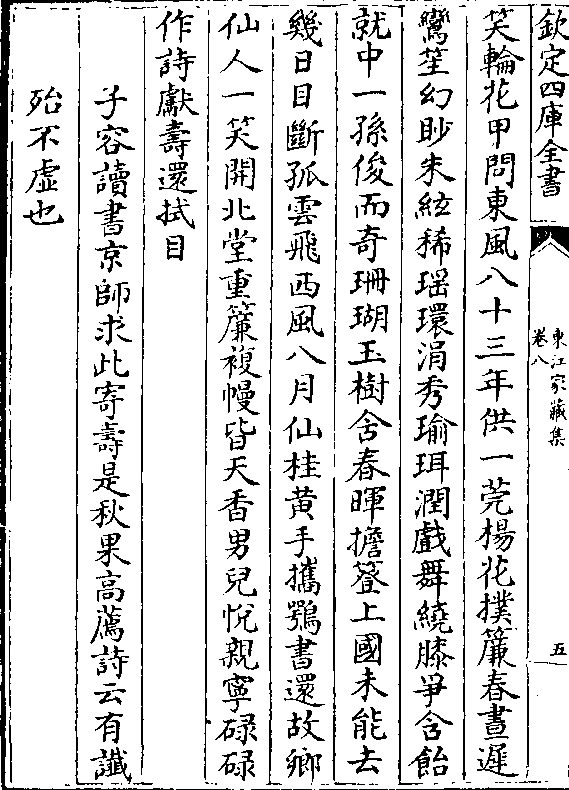 欽定四庫全書
東江家藏集
卷八
五
笑輪花甲問東風八十三年供一莞楊花撲簾春晝遲
鸞笙幻眇朱絃稀瑶環涓秀瑜珥潤戲舞繞膝爭含飴
就中一孫俊而奇珊瑚玉樹舍春暉擔簦上國未能去
幾日目斷孤雲飛西風八月仙桂黄手攜鶚書還故鄉
仙人一笑開北堂重簾複幔皆天香男兒悅親寧碌碌
作詩獻壽還拭目
子容讀書京師求此寄壽是秋果高薦詩云有讖
殆不虛也